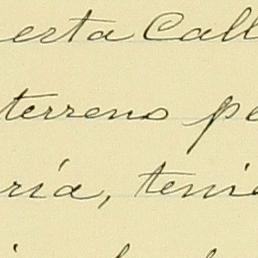 erta Call
terreno pe
ría, tenie